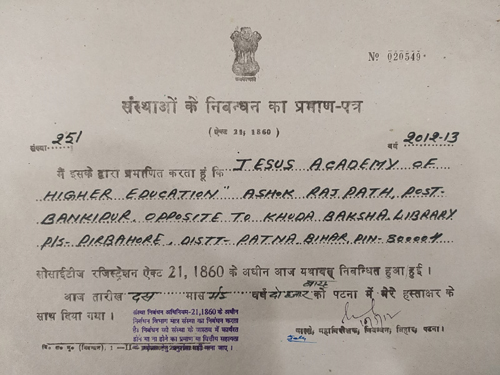 № 020549
संस्थाओं के निबन्धन का प्रमाण-पत्र
(ऐक्ट 21, 1860)
संख्या 251 वर्ष 2012-13
मैं इसके द्वारा प्रमाणित करता हूं कि JESUS ACADEMY OF
HIGHER EDUCATION" ASHOK RAJ PATH, POST-
BANKIPUR. OPPOSITE TO KHUDA BAKSHA LIBRARY
P/S- PIRBAHORE, DISTT- PATNA BIHAR, PIN- 800004
सोसाईटीज रजिस्ट्रेशन ऐक्ट 21, 1860 के अधीन आज यथावत् निबन्धित हुआ हुई ।
आज तारीख दस मास मई वर्ष दो हजार बारह को पटना में मेरे हस्ताक्षर के
साथ दिया गया ।
संस्था निबंधन अधिनियम-21,1860 के अधीन
निबंधन विभाग मात्र संस्था का निबंधन करता
है। निबंधन को संस्था के वास्तव में कार्यरत
होने या ना होने का प्रमाण या वित्तीय सहायता
वास्ते, महानिरीक्षक, निबन्धन, बिहार, पटना ।